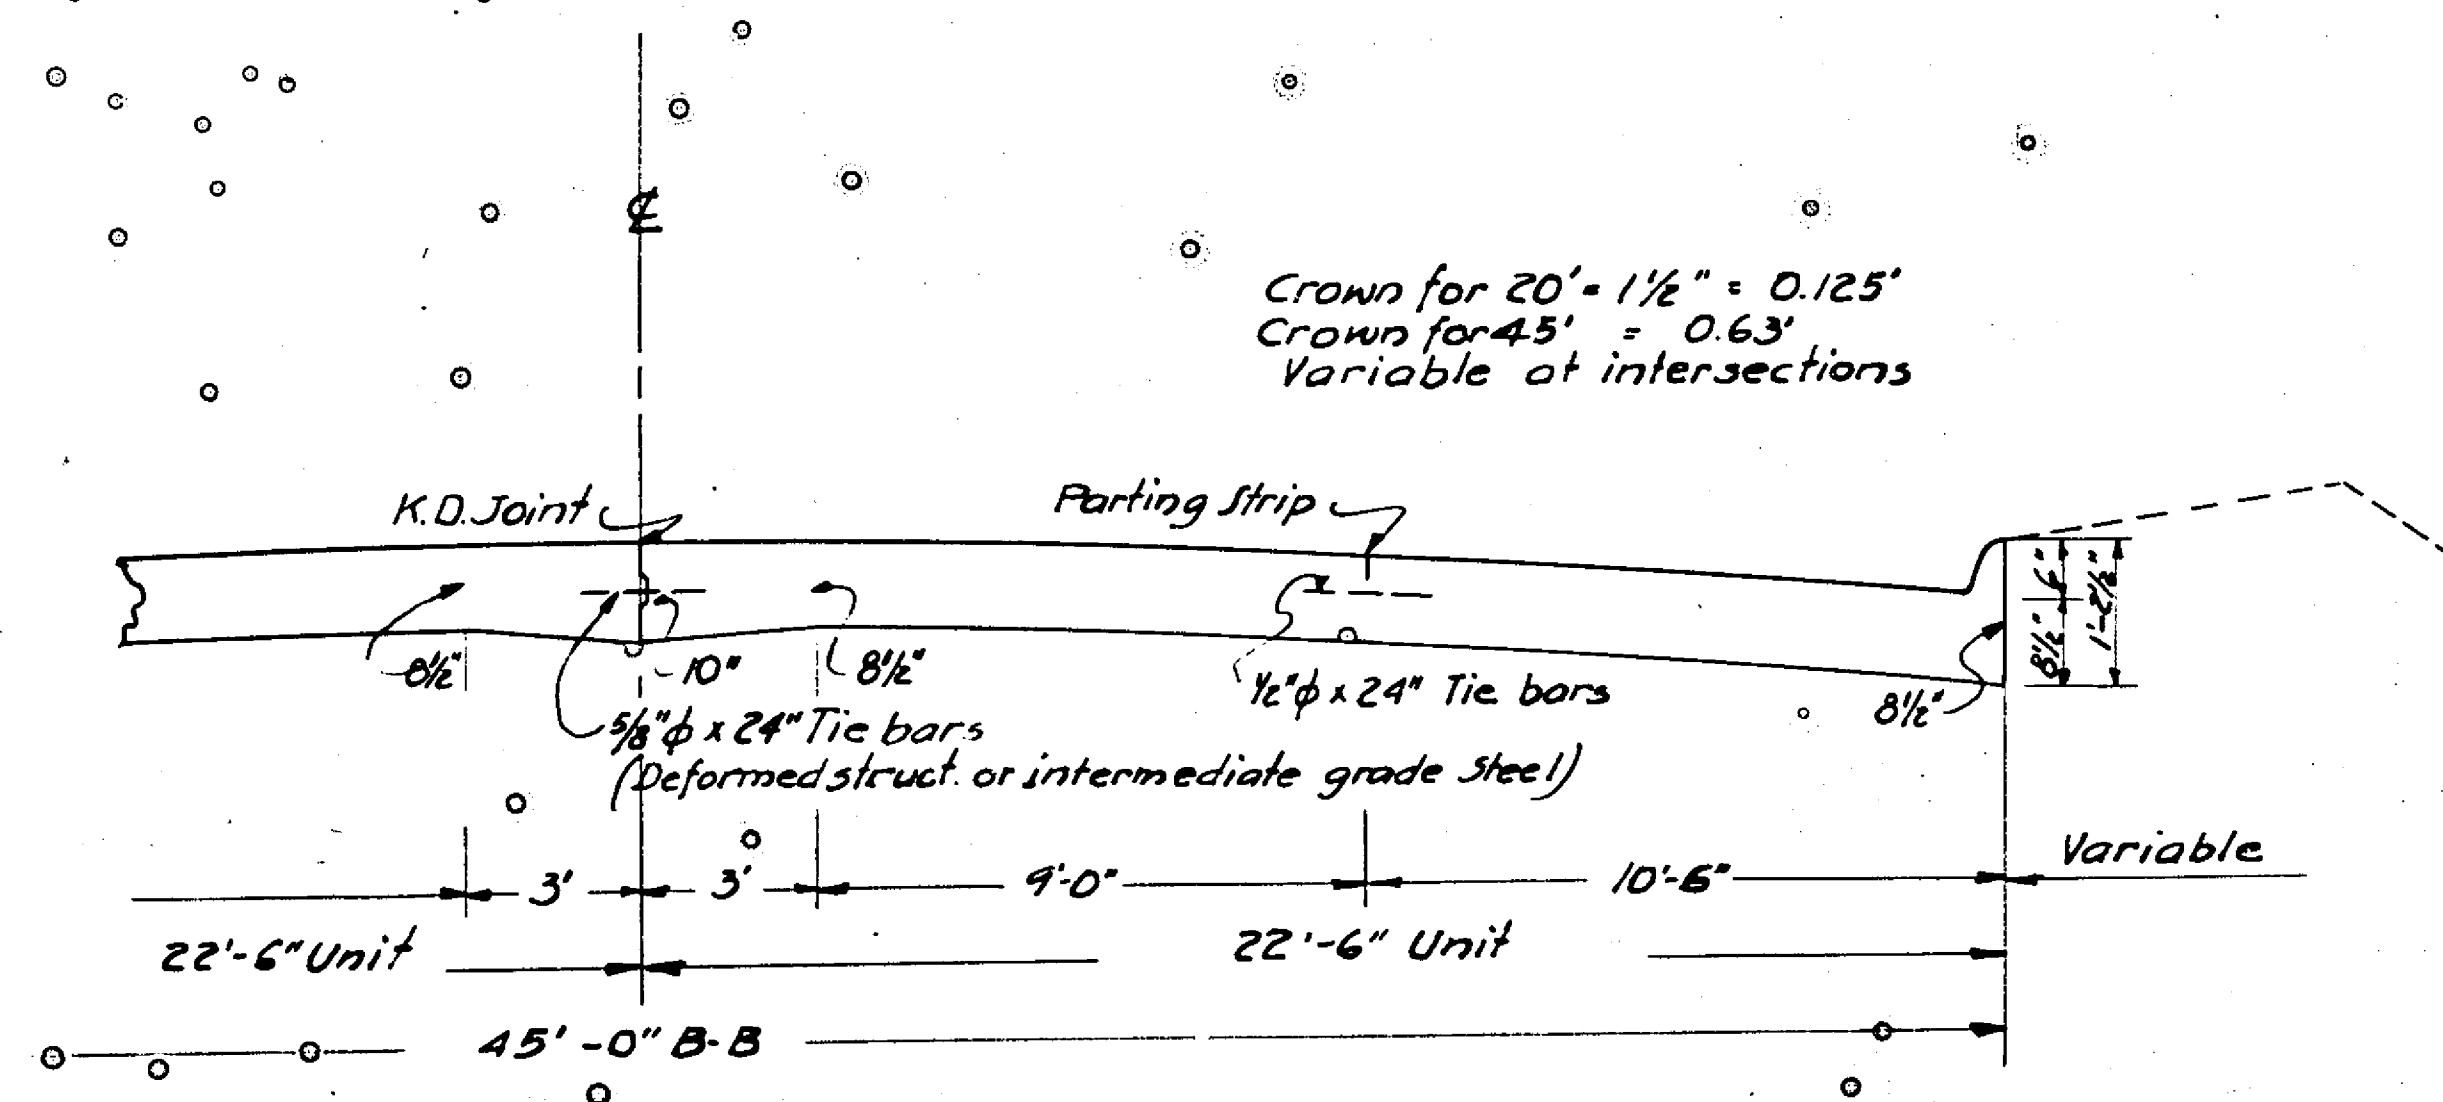 ℄
Crown for 20' = 1½" = 0.125'
Crown for 45' = 0.63'
Variable at intersections
K.D. Joint
Parting Strip
6"
8½"
1'-2½"
8½"
10"
8½"
½"ϕ x 24" Tie bars
8½"
⅝"ϕ x 24" Tie bars
(Deformed struct. or intermediate grade steel)
3'
3'
9'-0"
10'-6"
Variable
22'-6" Unit
22'-6" Unit
45'-0" B-B